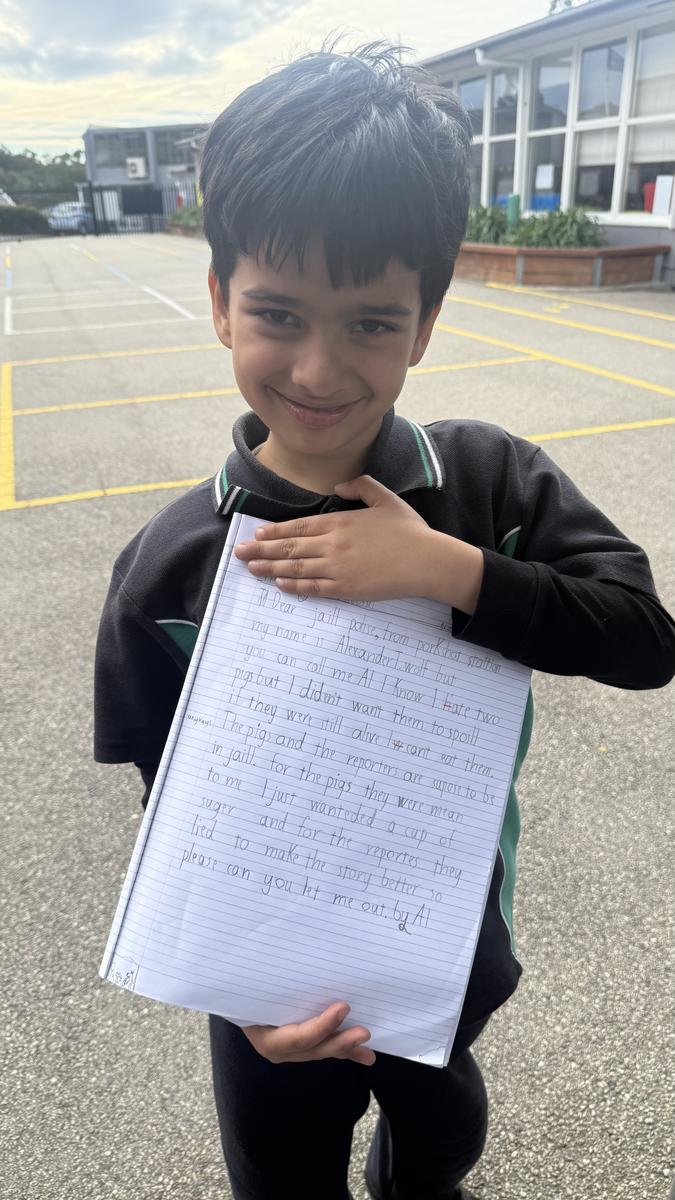 Dear jaill polise, from porkchot stattion
my name is Alexander T. wolf but
you can call me Al I know I Hate two
pigs but I dident want them to spoill
if they were still alive I cant eat them.
anyways The pigs and the reporters are supose to be
in jaill. for the pigs they were mean
to me I just wanteded a cup of
suger and for the reportes they
lied to make the story better so
please can you let me out. by Al